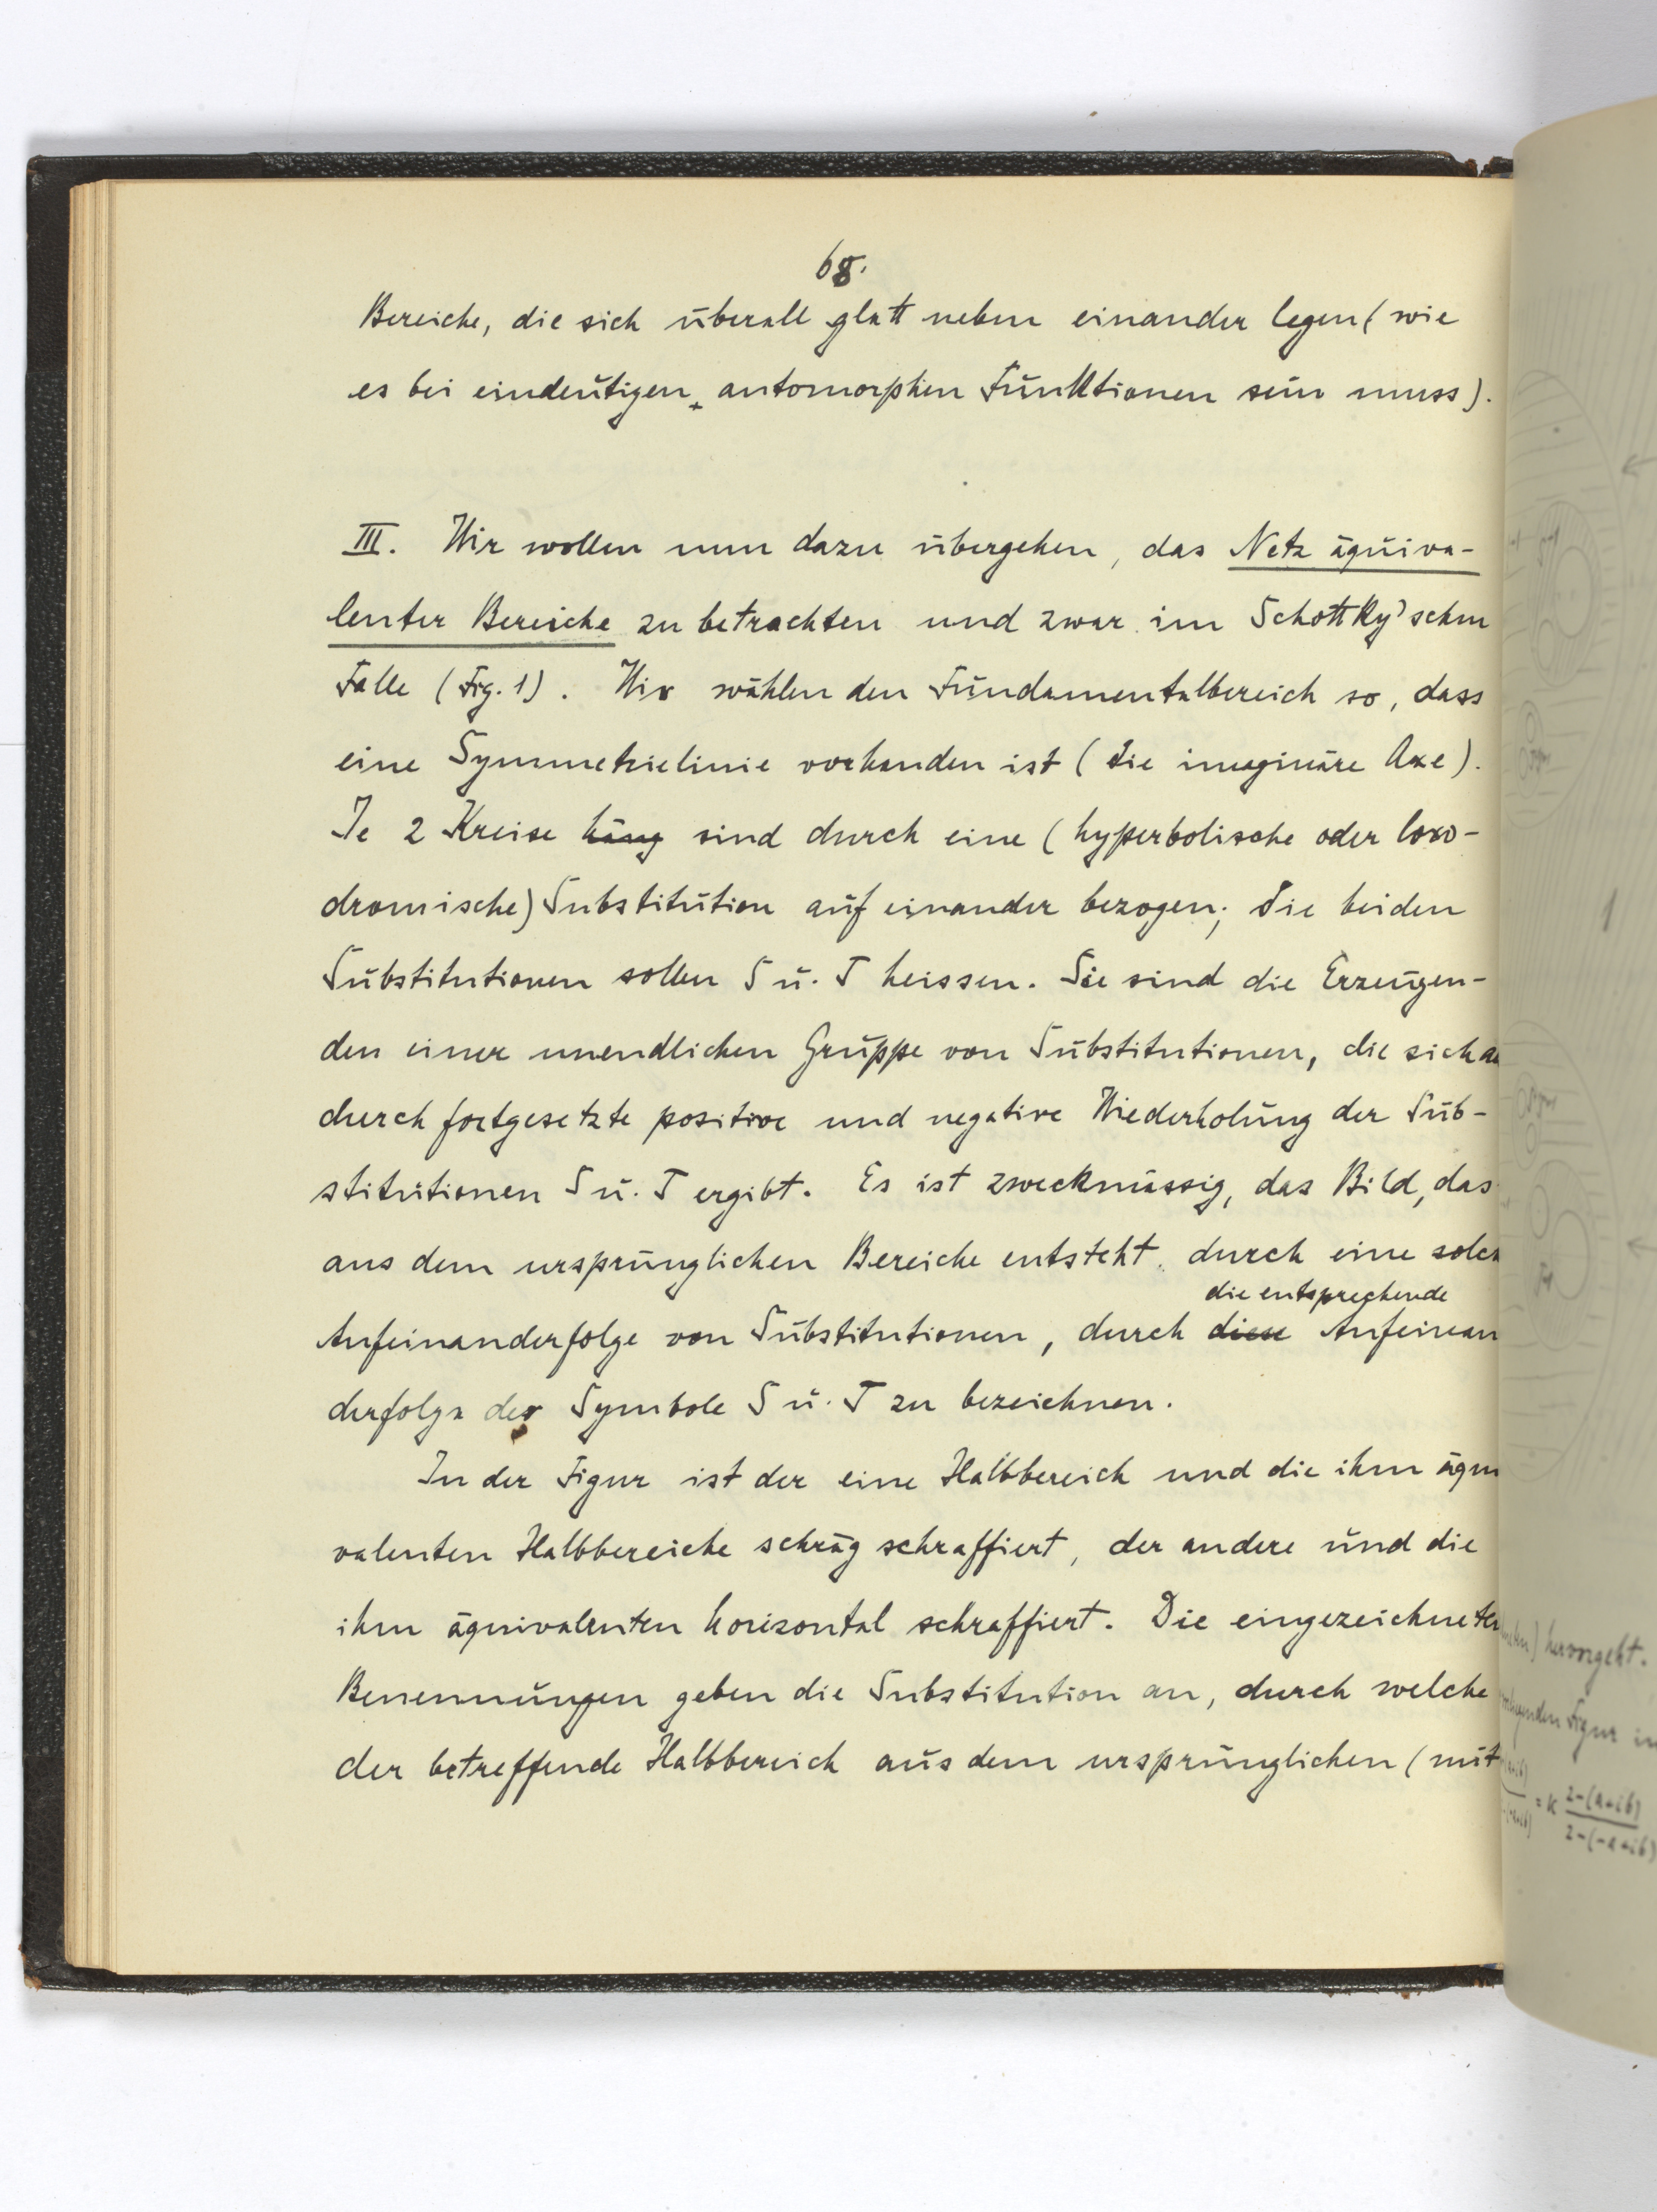 68.
Bereiche, die sich überall glatt neben einander legen (wie
es bei eindeutigen automorphen Funktionen sein muss).
III. Wir wollen nun dazu übergehen, das Netz äquiva-
lenter Bereiche zu betrachten und zwar im Schottky'schen
Falle (Fig. 1). Wir wählen den Fundamentalbereich so, dass
eine Symmetrielinie vorhanden ist (die imaginäre Axe).
Je 2 Kreise häng sind durch eine (hyperbolische oder loxo-
dromische) Substitution auf einander bezogen; die beiden
Substitutionen sollen S u. T heissen. Sie sind die Erzeugen-
den einer unendlichen Gruppe von Substitutionen, die sich
durch fortgesetzte positive und negative Wiederholung der Sub-
stitutionen S u. T ergibt. Es ist zweckmässig, das Bild, das
aus dem ursprünglichen Bereiche entsteht durch eine solch
die entsprechende
Aufeinanderfolge von Substitutionen, durch diese Aufeinan
derfolge der Symbole S u. T zu bezeichnen.
In der Figur ist der eine Halbbereich und die ihm äqui
valenten Halbbereiche schräg schraffiert, der andere und die
ihm äquivalenten horizontal schraffiert. Die eingezeichneten
Benennungen geben die Substitution an, durch welche
der betreffende Halbbereich aus dem ursprünglichen (mit
hervorgeht.
Figur
= K z-(a+ib)
z-(-a+ib)